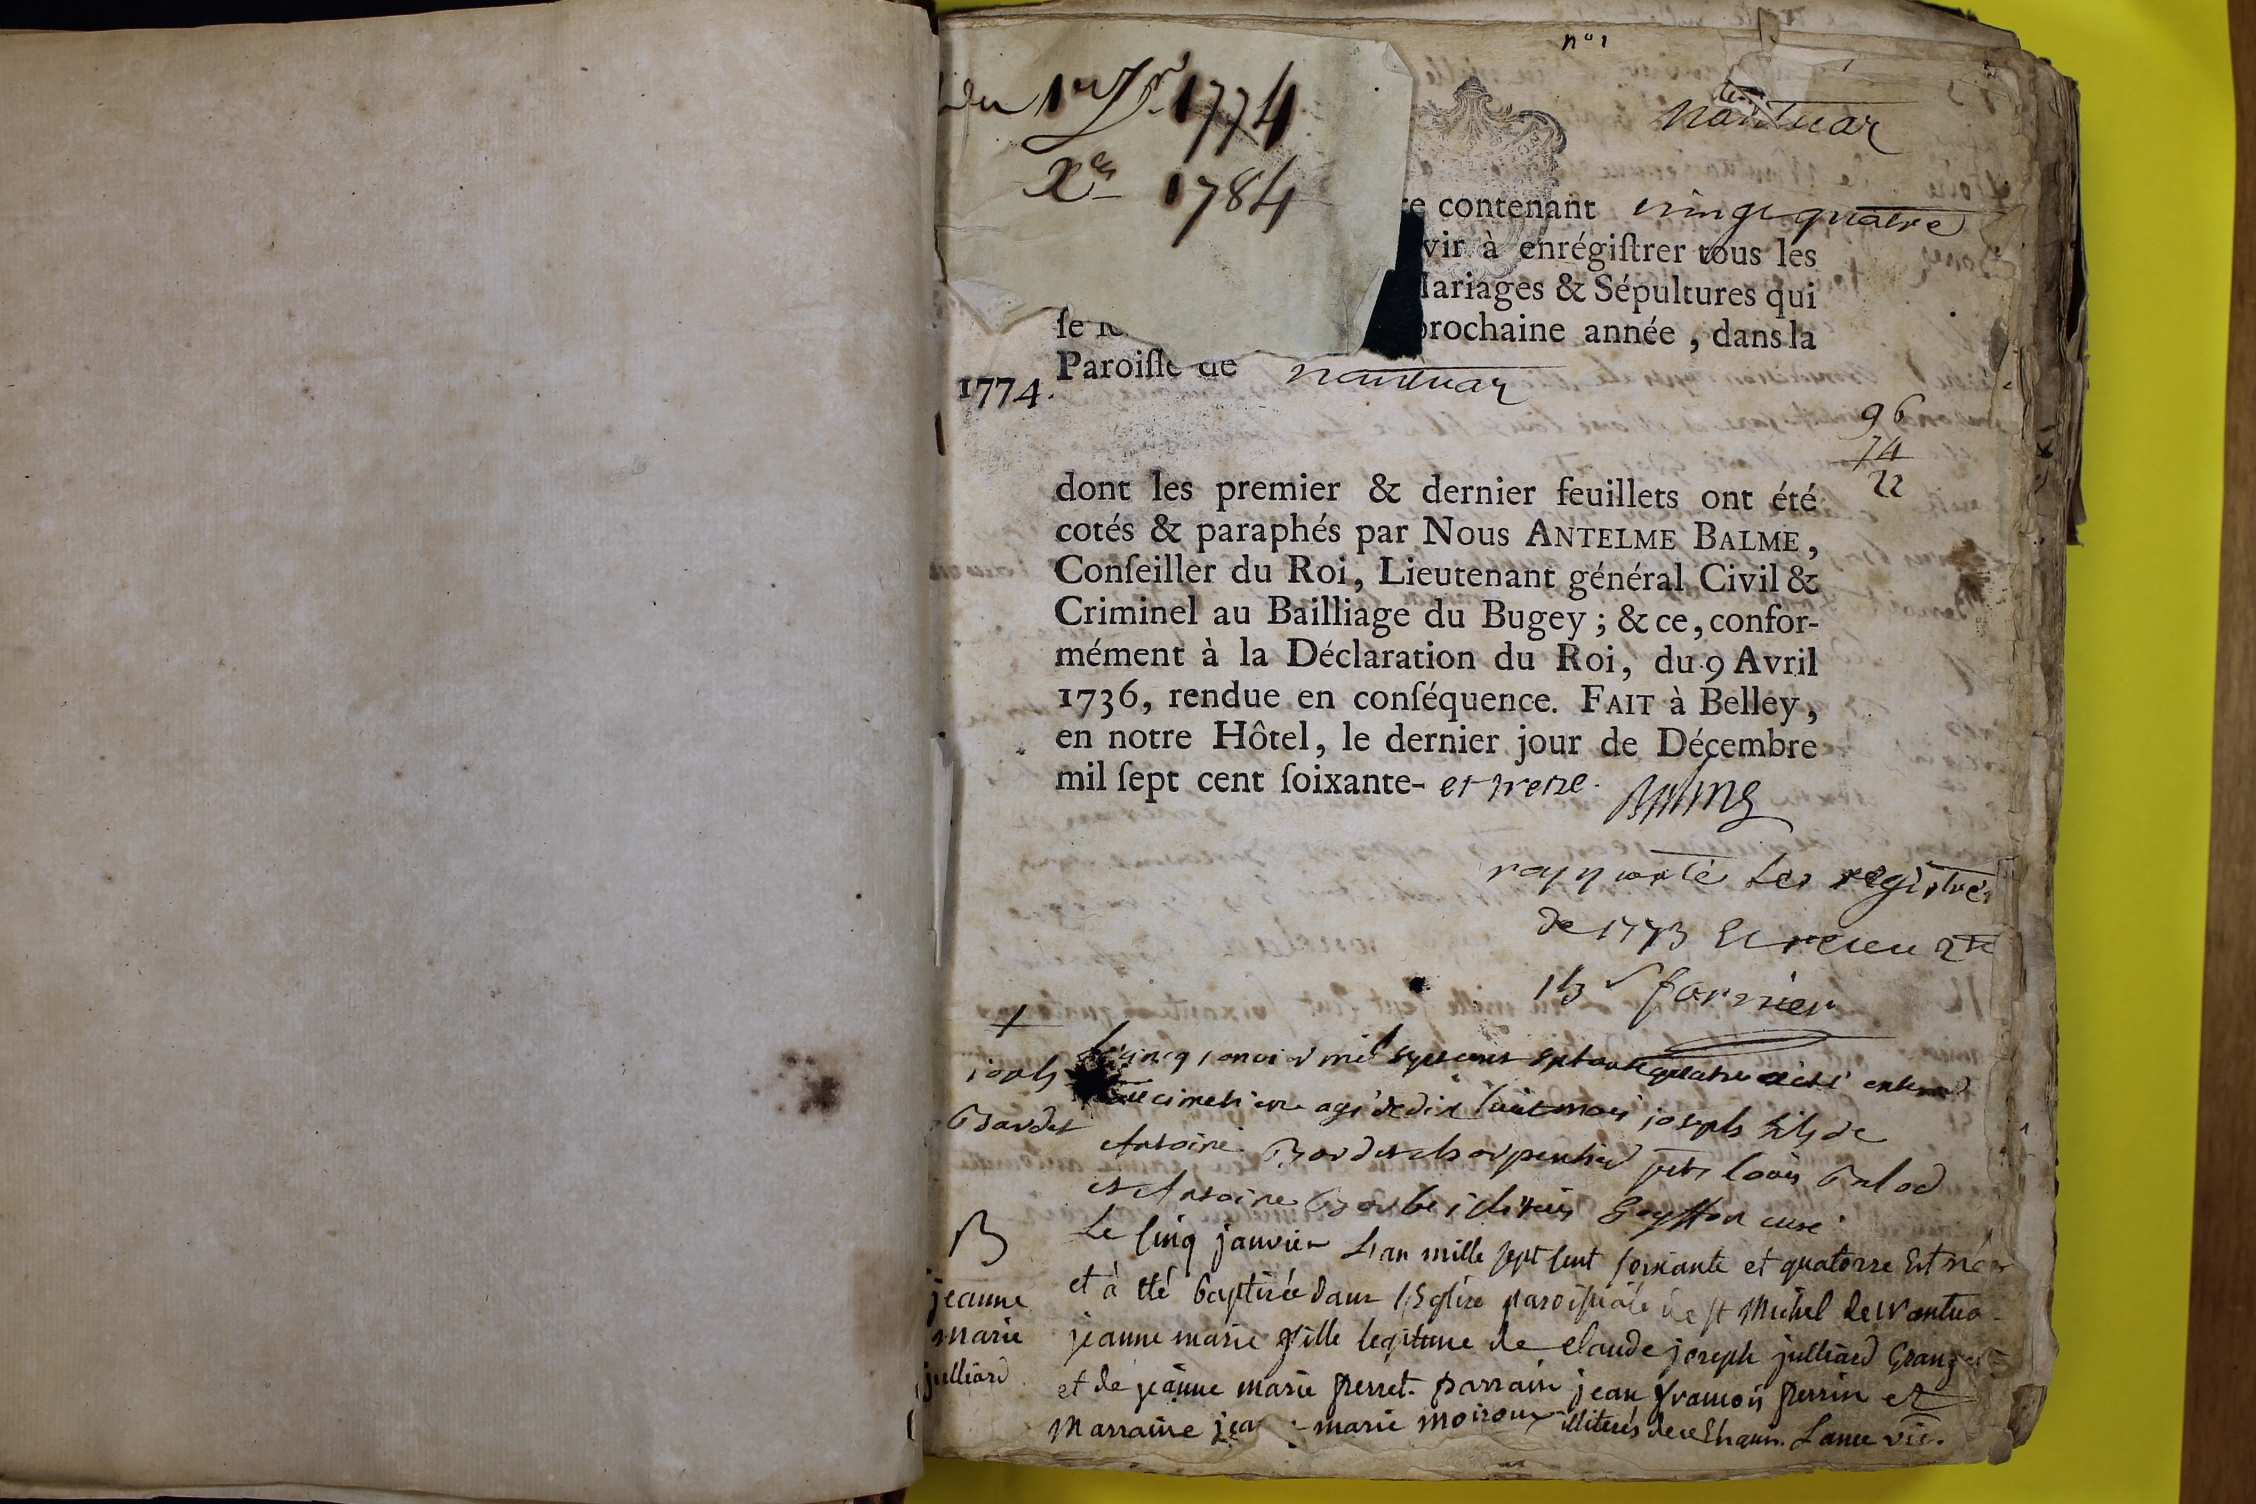 n° 1
du 1er Jr 1774
Xer 1784
nantuar
re contenant vingt quatre
vir à enrégiſtrer tous les
Mariages & Sépultures qui
ſe prochaine année, dans la
Paroiſſe de nantuar
1774.
96
74
22
dont les premier & dernier feuillets ont été
cotés & paraphés par Nous ANTELME BALME,
Conſeiller du Roi, Lieutenant général Civil &
Criminel au Bailliage du Bugey ; & ce, confor-
mément à la Déclaration du Roi, du 9 Avril
1736, rendue en conſéquence. FAIT à Belley,
en notre Hôtel, le dernier jour de Décembre
mil ſept cent ſoixante- et treize. Balme
rapporté Les registres
de 1773 Et receu
forrier
joseph
Bordet
Le cinq janvier mil sept cent septante quatre a été enterré
au cimetiere agé de dix huit mois joseph fils de
Antoine Bordet charpentier pnts louis
et Antoine Goyffon curé
B
jeanne
marie
julliard
Le cinq janvier L'an mille sept cent soixante et quatorze Est née
et à été baptisée dans L'Eglise paroissiale de st Michel de Nantua
jeanne marie fille legitime de claude joseph julliard Granger
et de jeanne marie perret. parrain jean françois perrin et
Marraine marie moiroux illiterés de ce Lance vic.